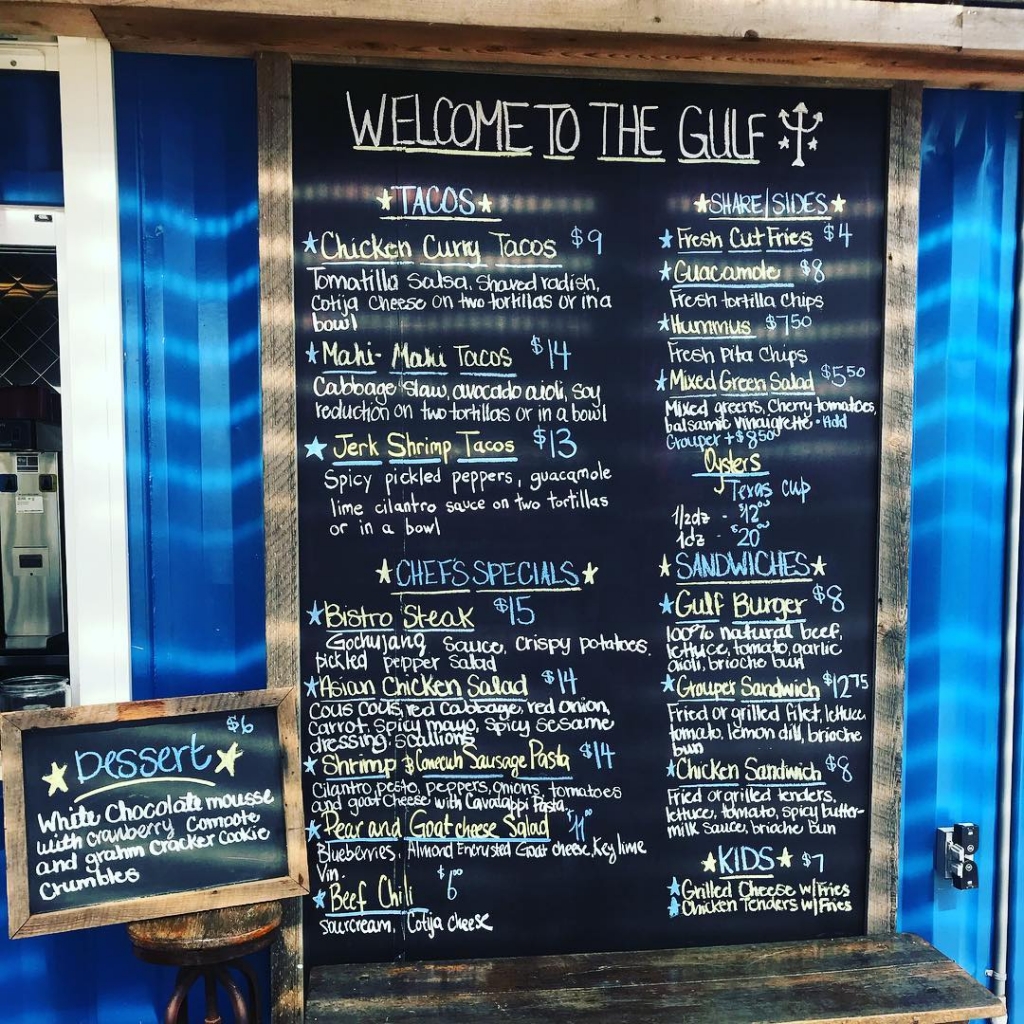 WELCOME TO THE GULF
TACOS
Chicken Curry Tacos $9
Tomatillo Salsa, Shaved radish,
Cotija Cheese on two tortillas or in a
bowl
Mahi-Mahi Tacos $14
Cabbage slaw, avocado aioli, soy
reduction on two tortillas or in a bowl
Jerk Shrimp Tacos $13
Spicy pickled peppers, guacamole
lime cilantro sauce on two tortillas
or in a bowl
CHEFS SPECIALS
Bistro Steak $15
Gochujang Sauce, crispy potatoes,
pickled pepper salad
Asian Chicken Salad $14
Cous Cous, red Cabbage, red onion,
Carrot, spicy mayo, spicy sesame
dressing, scallions
Shrimp & Conecuh Sausage Pasta $14
Cilantro pesto, peppers, onions, tomatoes
and goat cheese with Cavatappi Pasta.
Pear and Goat cheese Salad $11
Blueberries, Almond Encrusted Goat cheese, Key lime
Vin.
Beef Chili $6
sourcream, Cotija Cheese
SHARE/SIDES
Fresh Cut Fries $4
Guacamole $8
Fresh tortilla Chips
Hummus $7.50
Fresh Pita Chips
Mixed Green Salad $5.50
Mixed greens, Cherry tomatoes,
balsamic vinaigrette • Add
Grouper + $8.50
Oysters
Texas cup
1/2dz - $12.00
1dz - $20.00
SANDWICHES
Gulf Burger $8
100% natural beef,
lettuce, tomato, garlic
aioli, brioche bun
Grouper Sandwich $12.75
Fried or grilled filet, lettuce
tomato, lemon dill, brioche
bun
Chicken Sandwich $8
Fried or grilled tenders,
lettuce, tomato, spicy butter-
milk Sauce, brioche Bun
KIDS $7
Grilled Cheese w/Fries
Chicken Tenders w/Fries
$6
Dessert
White Chocolate mousse
with cranberry Compote
and grahm Cracker Cookie
Crumbles